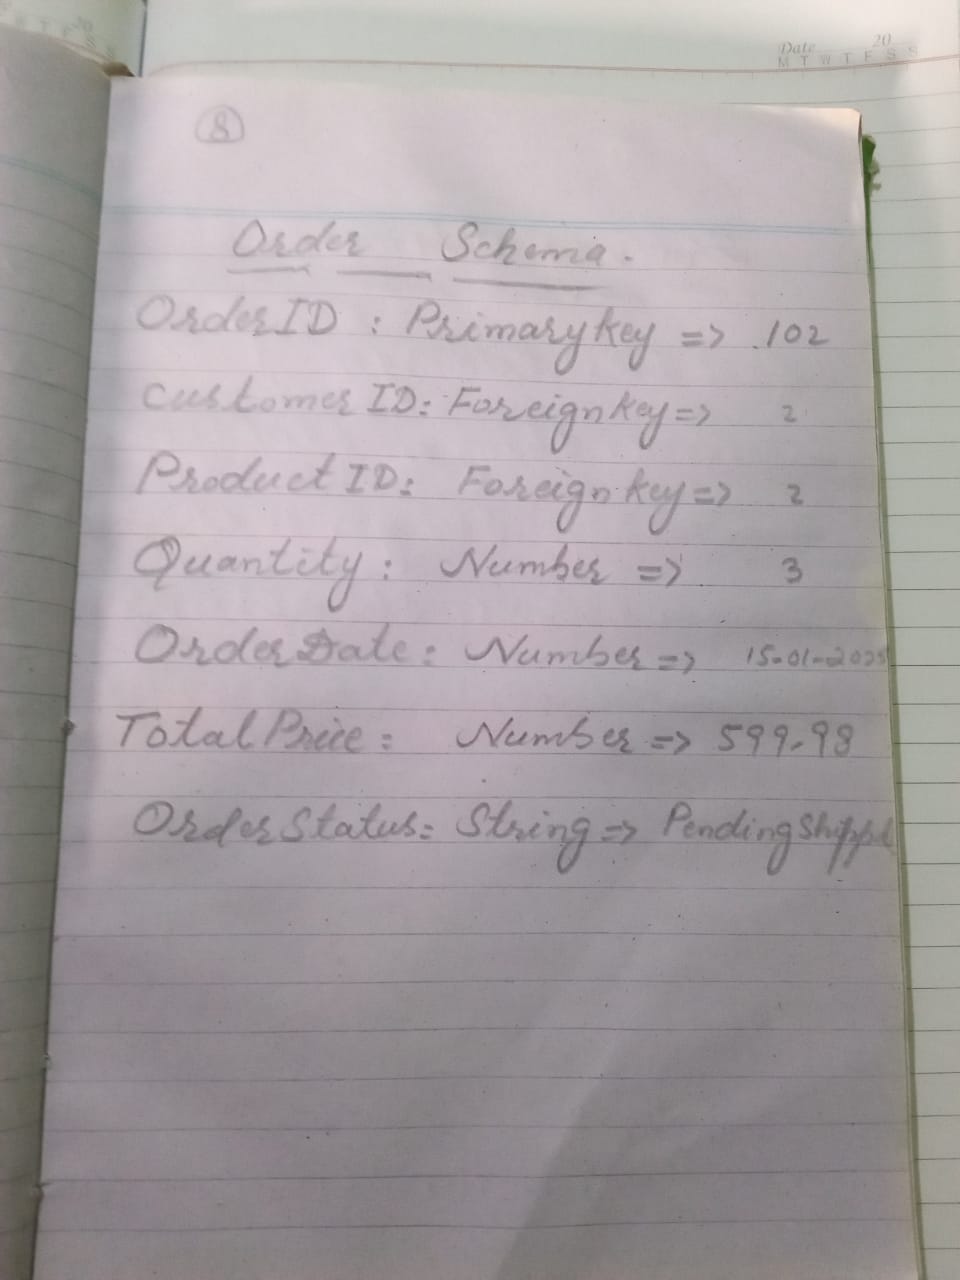 Date 20
M T W T F S S
8
Order Schema.
OrderID : Primarykey => .102
customer ID: Foreignkey => 2
Product ID: Foreign key => 2
Quantity: Number => 3
OrderDate: Number => 15-01-2025
Total Price: Number => 599.98
OrderStatus: String => Pending